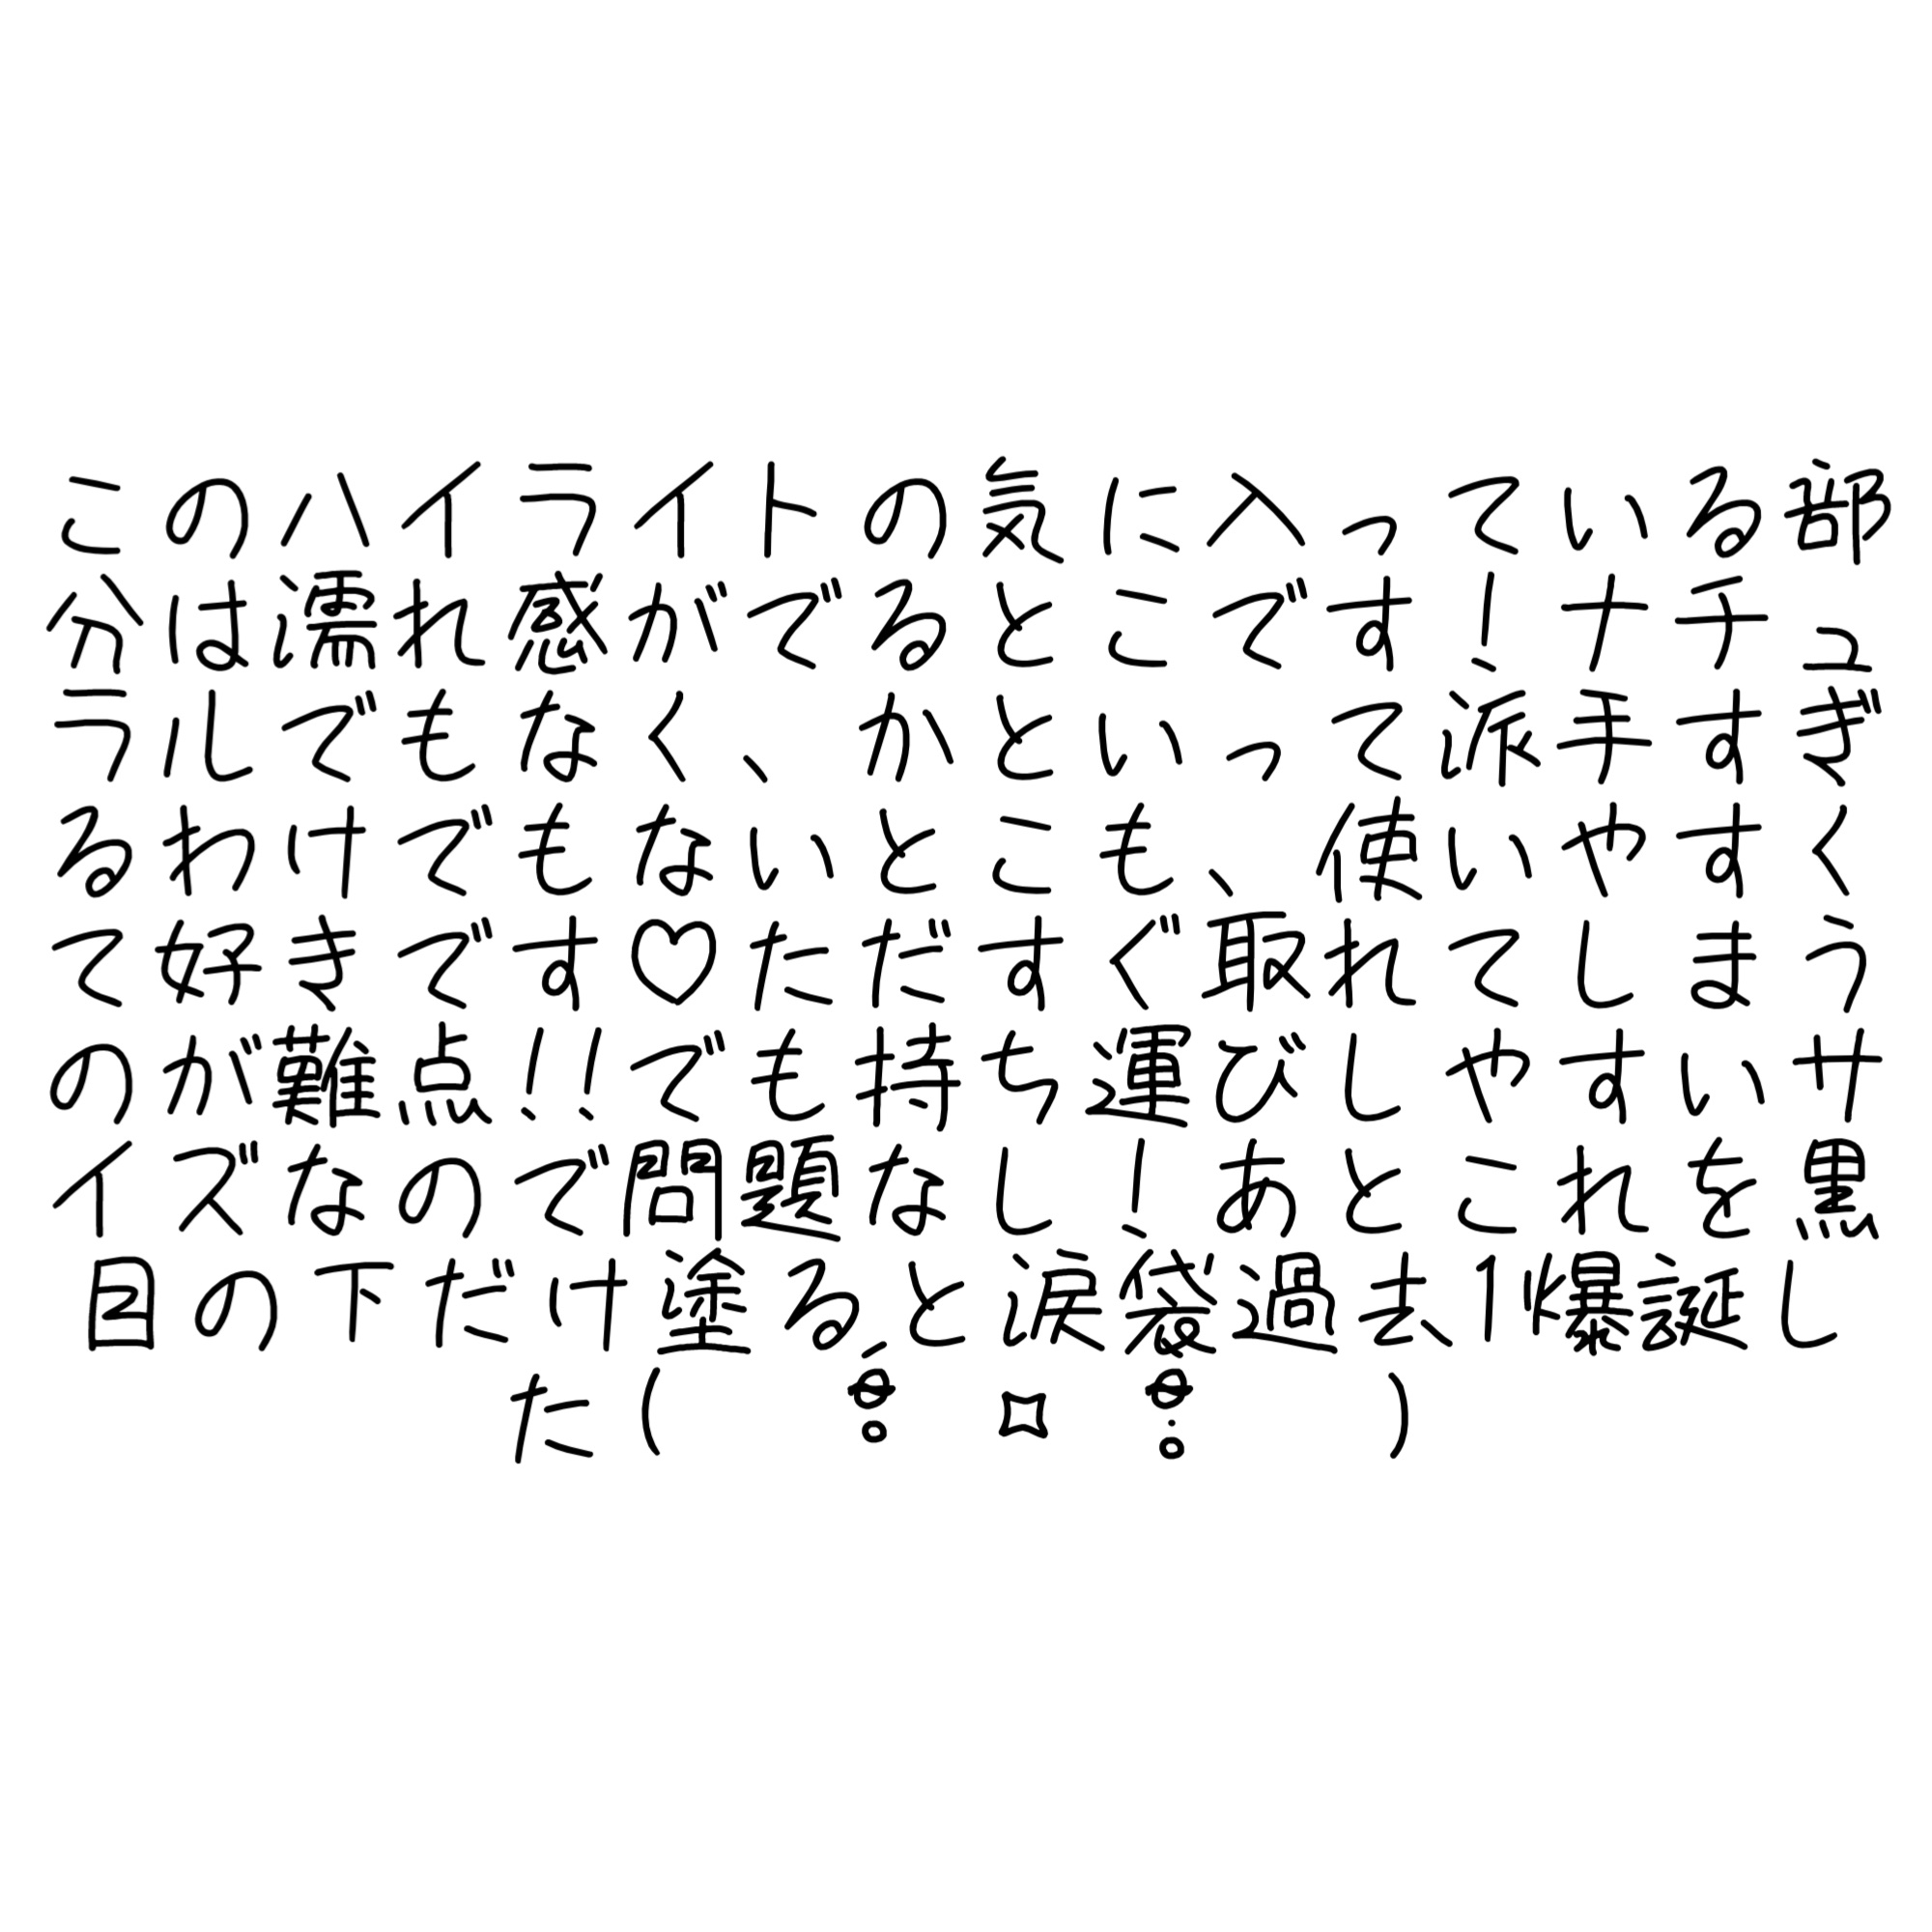 このハイライトの気に入っている部
分は濡れ感がでるとこです！ナチュ
ラルでもなく、かといって派手すぎ
るわけでもないとこも、使いやすく
て好きです♡ただすぐ取れてしまう
のが難点！！でも持ち運びしやすいサ
イズなので問題なし！あとこれを黒
目の下だけ塗ると涙袋過去1爆誕し
た（ ）